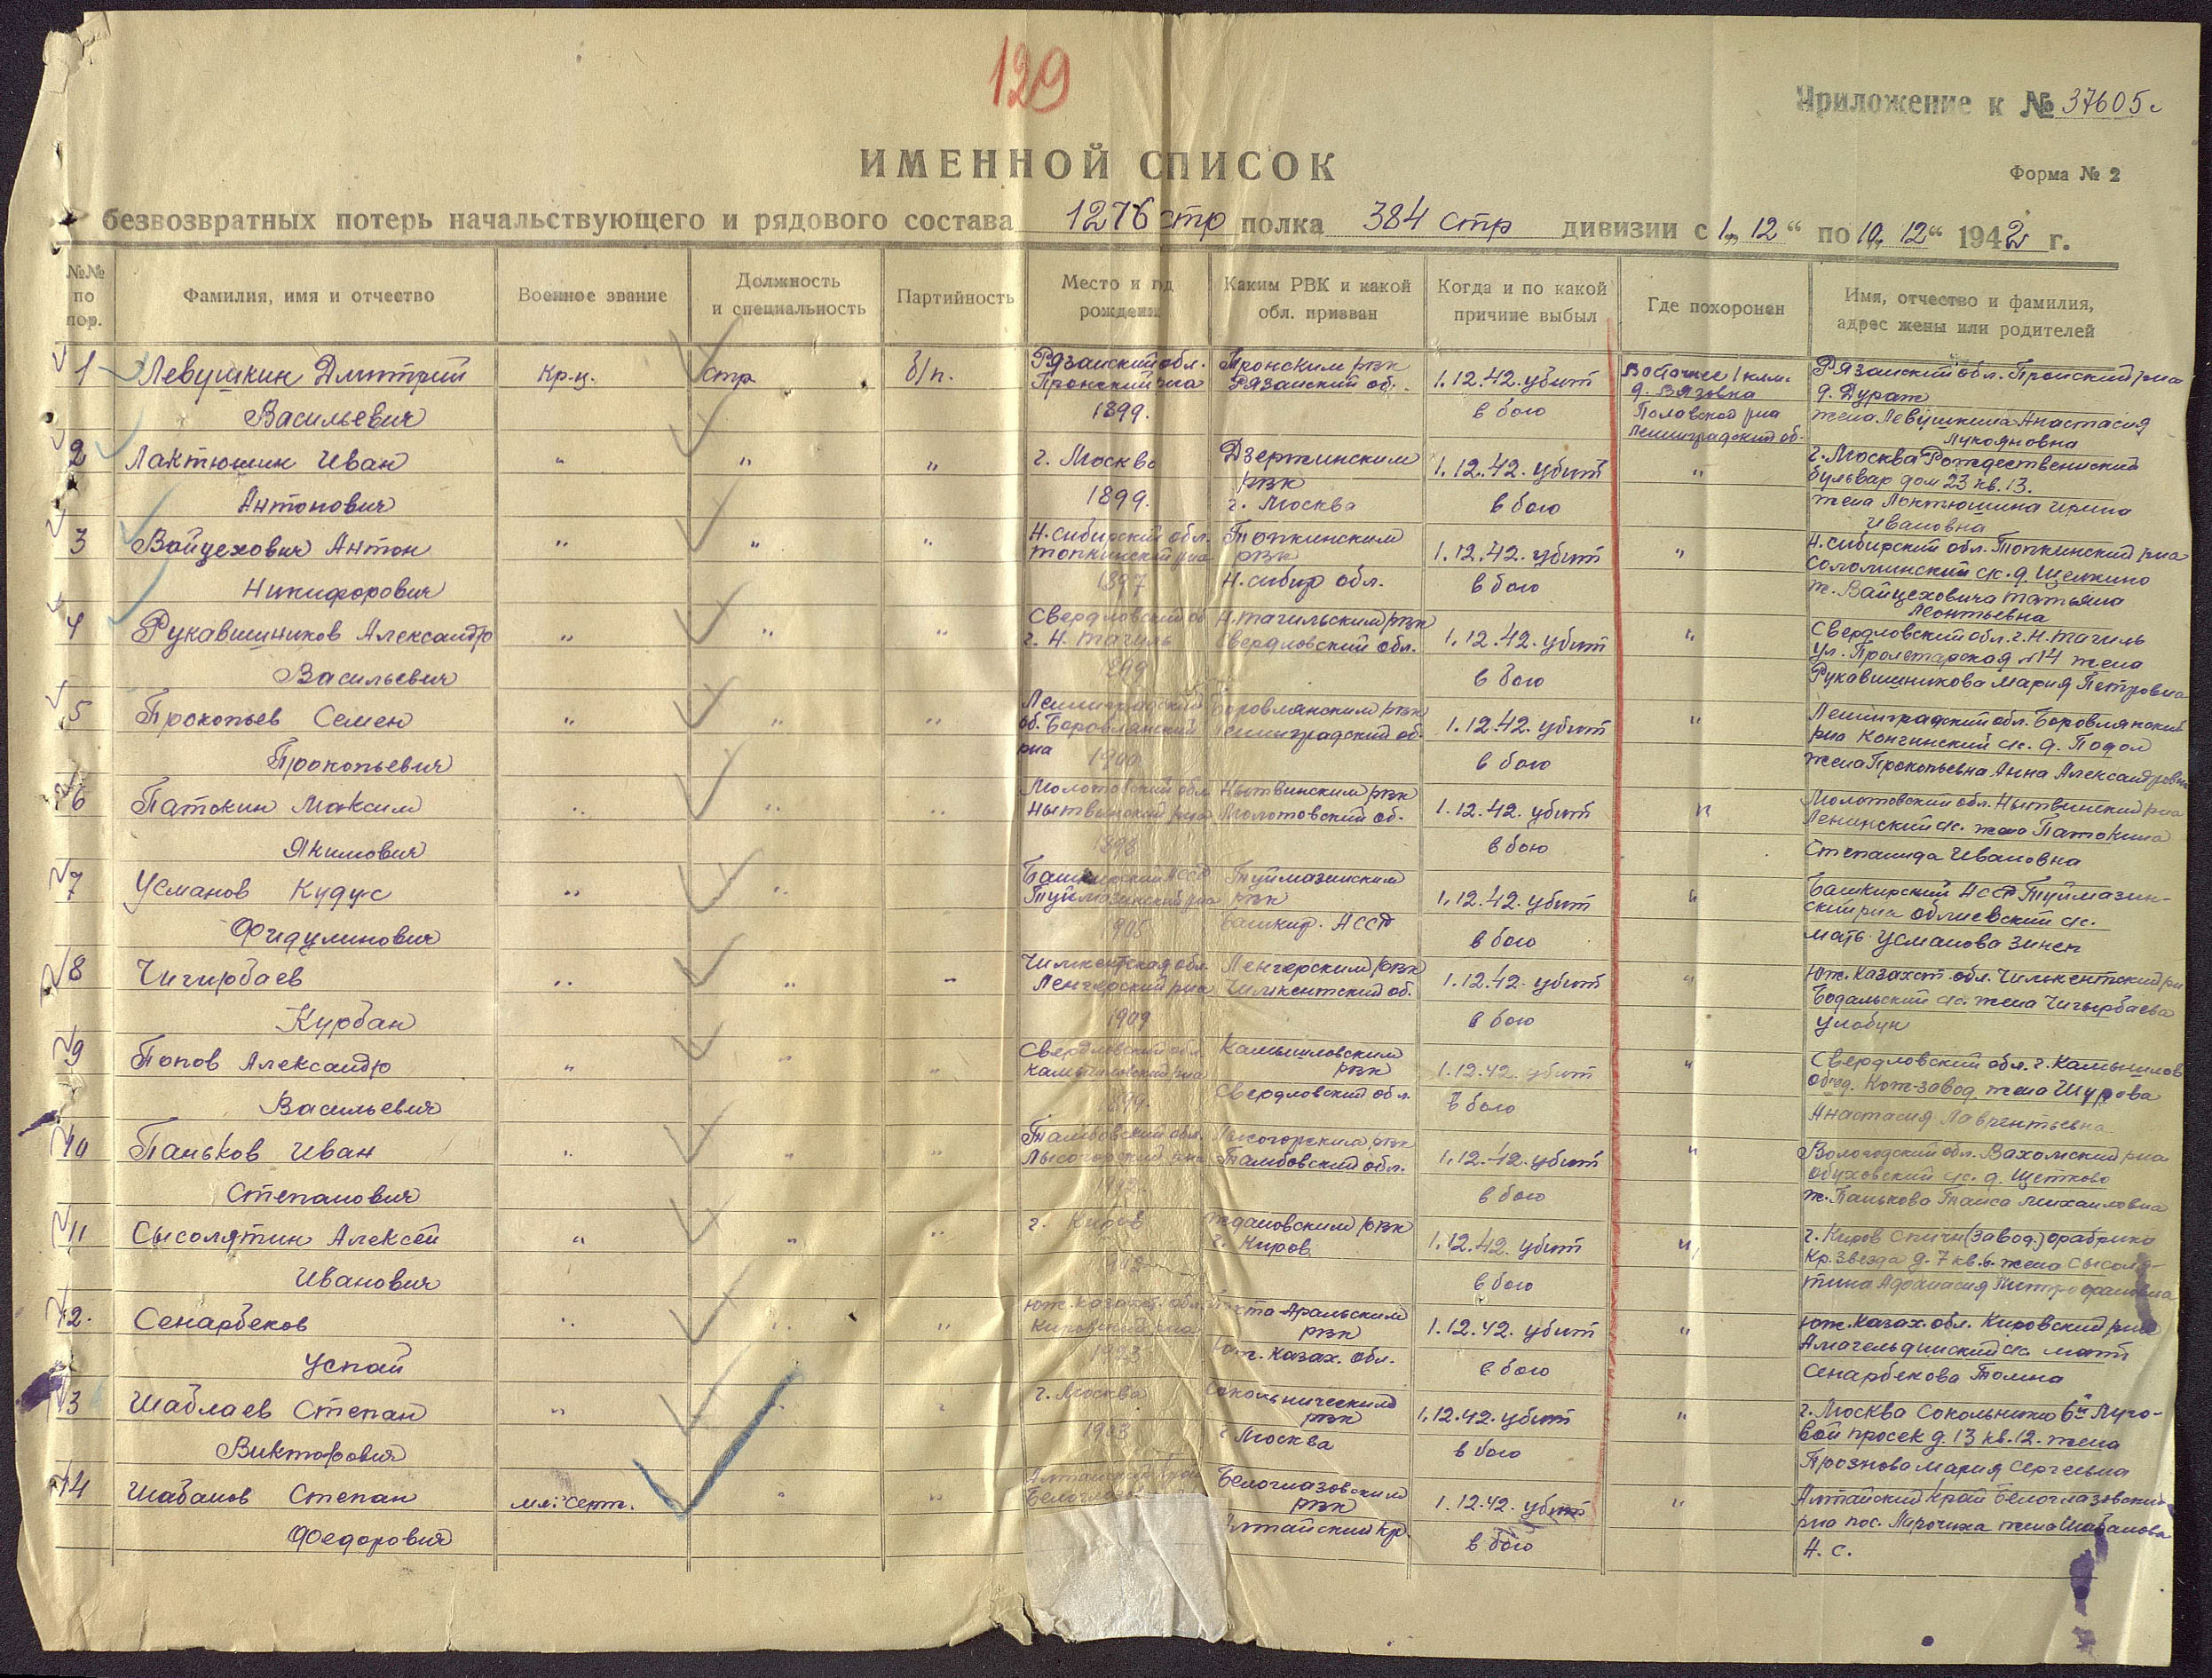 129
Приложение к № 37605с
ИМЕННОЙ СПИСОК
Форма № 2
безвозвратных потерь начальствующего и рядового состава 1276 стр полка 384 стр дивизии с 1„ 12“ по 10„ 12“ 1942 г.
№№ по пор.
Фамилия, имя и отчество
Военное звание
Должность и специальность
Партийность
Место и год рождения
Каким РВК и какой обл. призван
Когда и по какой причине выбыл
Где похоронен
Имя, отчество и фамилия, адрес жены или родителей
1 Левушкин Дмитрий Васильевич
Кр-ц.
стр.
б/п.
Рязанский обл. Пронский р-на 1899.
Пронским рвк Рязанский об.
1.12.42. убит в бою
Восточнее 1 клм. д. Вязовка Полавской р-на Ленинградский об.
Рязанский обл. Пронский р-на
д. Дурат
жена Левушкина Анастасия
Лукояновна
2 Лактюшин Иван Антонович
"
"
"
г. Москва 1899.
Дзержинским рвк г. Москва
1.12.42. убит в бою
"
г. Москва Рождественский
бульвар дом 23 кв. 13.
жена Локтюшина Ирина
Ивановна
3 Войцехович Антон Никифорович
"
"
"
Н. Сибирский обл. Топкинский р-на 1897
Топкинским рвк Н. Сибир обл.
1.12.42. убит в бою
"
Н. Сибирский обл. Топкинский р-на
Соломинский с/с. д. Щелкино
ж. Войцеховича Татьяна
Леонтьевна
4 Рукавишников Александр Васильевич
"
"
"
Свердловский об г. Н. Тагиль 1899
Н. Тагильским рвк Свердловский обл.
1.12.42. убит в бою
"
Свердловский обл. г. Н. Тагиль
ул. Пролетарская №14 жена
Рукавишникова Мария Петровна
5 Прокопьев Семен Прокопьевич
"
"
"
Ленинградский об. Боровлянский р-на 1900
Боровлянским рвк Ленинградский об.
1.12.42. убит в бою
"
Ленинградский обл. Боровлянский
р-на Кончинский с/с. д. Подол
жена Прокопьевна Анна Александровна
6 Патокин Максим Якимович
"
"
"
Молотовский обл Нытвинский р-на 1898
Нытвинским рвк Молотовский об.
1.12.42. убит в бою
"
Молотовский обл. Нытвинский р-на
Ленинский с/с. жена Патокина
Степанида Ивановна
7 Усманов Кудус Фидулинович
"
"
Башкирский АССР Туймазинский р-на 1905
Туймазинским рвк Башкир. АССР
1.12.42. убит в бою
"
Башкирский АССР Туймазин-
ский р-на облиевский с/с.
мать Усманова Зинеп
8 Чигирбаев Курбан
"
"
"
Чимкентская обл. Ленгерский р-на 1909
Ленгерским рвк Чимкентский об.
1.12.42. убит в бою
"
Юж. Казахст. обл. Чимкентский р-н
Бодальский с/с. жена Чигырбаева
Улобук
9 Попов Александр Васильевич
"
"
"
Свердловский обл. Камышловский р-на 1899.
Камышловским рвк Свердловский обл.
1.12.42 убит в бою
"
Свердловский обл. г. Камышлов
общ. Кож-завод жена Шурова
Анастасия Лаврентьевна
10 Паньков Иван Степанович
"
"
"
Тамбовский обл. Лысогорский р-на
Лысогорским рвк Тамбовский обл.
1.12.42. убит в бою
"
Вологодский обл. Вахомский р-на
Обуховский с/с. д. Щетково
ж. Панькова Таиса Михаиловна
11 Сысолятин Алексей Иванович
"
"
"
г. Киров
Ждановским рвк г. Киров
1.12.42. убит в бою
"
г. Киров Спичн(завод.) фабрика
Кр. Звезда д. 7 кв. 6. жена Сысоля-
тина Афонасия Митрофановна
12. Сенарбеков Успай
"
"
"
Юж. Казахт. обл. Кировский р-на 1923
Пахта-Аральским рвк Юж. Казах. обл.
1.12.42. убит в бою
"
Юж. Казах. обл. Кировский р-на
Амагельдинский с/с мать
Сенарбекова Толина
13 Шаблаев Степан Викторович
"
"
"
г. Москва 1903
Сокольническим рвк г Москва
1.12.42. убит в бою
"
г. Москва Сокольники 6й Луго-
вой просек д. 13 кв. 12. жена
Прознова Мария Сергеевна
14 Шабанов Степан Федорович
мл. серж.
"
"
Алтайский край Белоглазов
Белоглазовским рвк Алтайский кр
1.12.42. убит в бою
"
Алтайский край Белоглазовский
р-на пос. Мирочиха жена Шабанова
А. С.